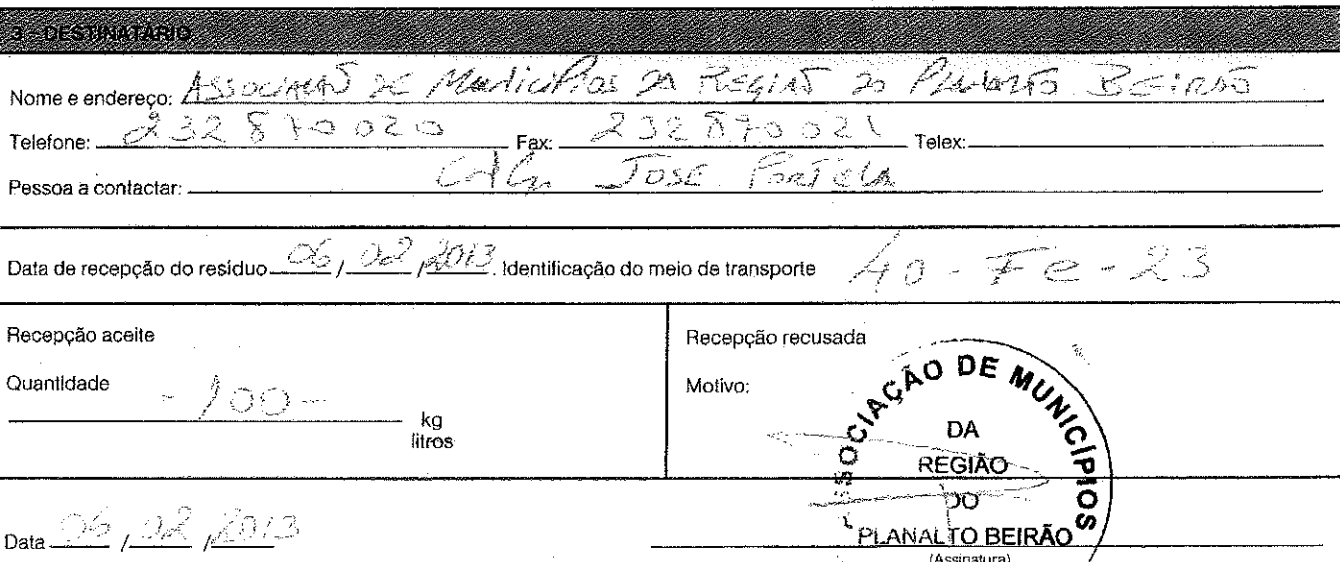 3 - DESTINATÁRIO
Nome e endereço: Associação de Municípios da Região do Planalto Beirão
Telefone: 232 870 020 Fax: 232 870 021 Telex:
Pessoa a contactar: José Portela
Data de recepção do resíduo 06 / 02 / 2013. Identificação do meio de transporte 40-FE-23
Recepção aceite
Quantidade -100- kg
litros
Recepção recusada
Motivo:
ASSOCIAÇÃO DE MUNICÍPIOS
DA
REGIÃO
DO
PLANALTO BEIRÃO
Data 06 / 02 / 2013
(Assinatura)